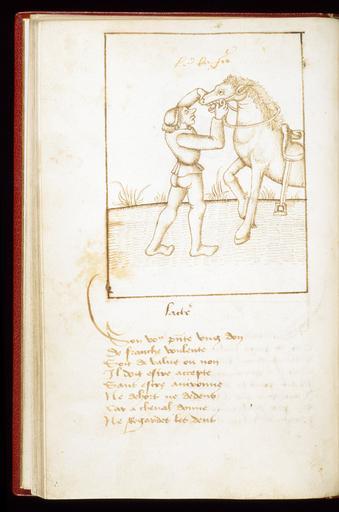 lacte²
Son vo⁹ p̃nte vng don
De franche voulente
Soit de value ou non
Il doit estre accepte
Sans estre
Ne dehors ne dedens
Car a cheval donne
Ne regardes les dent